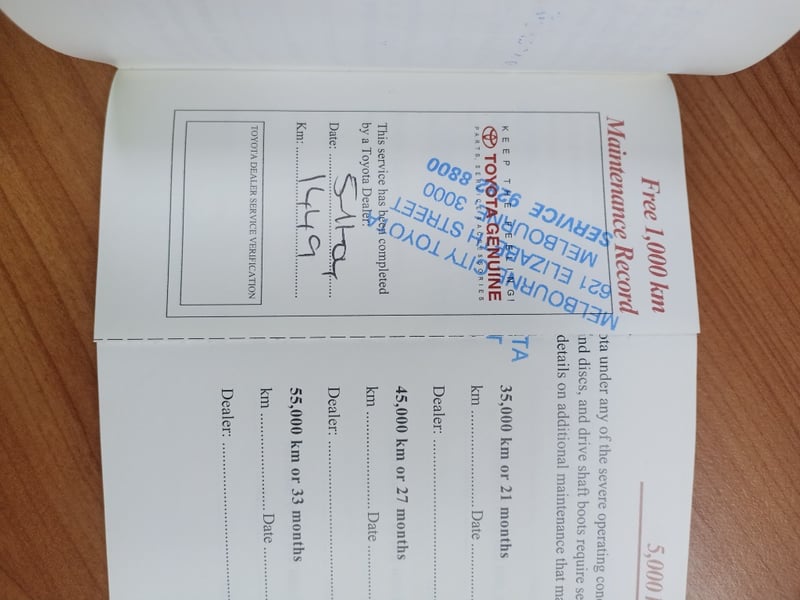 Free 1,000 km
Maintenance Record
KEEP THE FEELING!
TOYOTA GENUINE
MELBOURNE CITY TOYOTA
621 ELIZABETH STREET
MELBOURNE 3000
SERVICE 9282 8800
This service has been completed
by a Toyota Dealer.
Date:
Km: 1449
TOYOTA DEALER SERVICE VERIFICATION
5,000
ota under any of the severe operating
nd discs, and drive shaft boots require
details on additional maintenance that
TA
35,000 km or 21 months
km Date
Dealer:
45,000 km or 27 months
km Date
Dealer:
55,000 km or 33 months
km Date
Dealer: